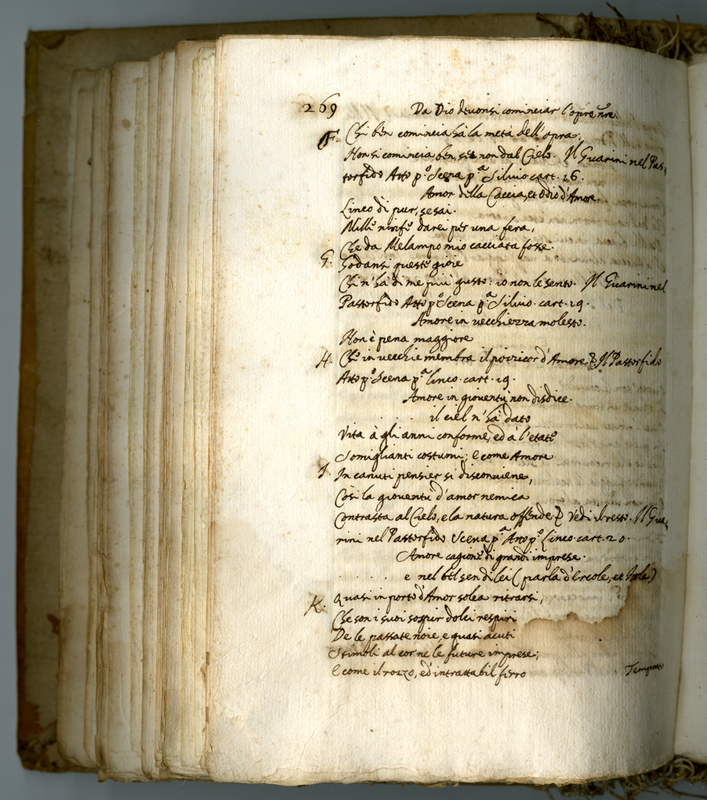 269 Da Dio devonsi cominciar l'opre nre.
F. Chi ben comincia hà la metà dell'opra,
Non si comincia ben, se non dal Cielo. Il Guarini nel Pas-
torfido Atto p.º Scena p.ª Silvio cart. 16.
Amor della Caccia, et Odio d'Amore.
Linco di pur, se sai.
Mille ninfe darei per una fera,
Che da Melampo mio cacciata fosse.
G. Godansi queste gioie
Chi n'hà di me più gusto: io non le sento. Il Guarini nel
Pastorfido Atto p.º Scena p.ª Silvio. cart. 19.
Amore in vecchiezza molesto.
Non è pena maggiore
H. Che in vecchie membra il pizzicor d'Amore. & Il Pastorfido
Atto p.º Scena p.ª Linco. cart. 19.
Amore in gioventù non disdice.
. . . . . il ciel n'hà dato
Vita à gli anni conforme, ed à l'etate
Somiglianti costumi; e come Amore
I. In canuti pensier si disconviene,
Così la gioventù d'amor nemica
Contrasta al Cielo, e la natura offende. & Vedi il resto. Il Gua-
rini nel Pastorfido Scena p.ª Atto p.º Linco cart. 20.
Amore cagione di grandi imprese.
. . . . . e nel bel sen di lei (parla d'Ercole, et Iole)
K. Quasi in porto d'Amor solea ritrarsi,
Che son i suoi sospir dolci respiri
De le passate noie, e quasi acuti
Stimoli al cor ne le future imprese;
E come il rozzo, ed intrattabil ferro